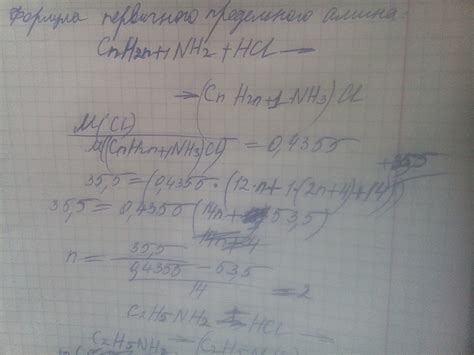 Формула первичного предельного амина:
CnH2n+1NH2 + HCl —
→ (CnH2n+1NH3)Cl
M(Cl) / M((CnH2n+1NH3)Cl) = 0,4355
35,5 = (0,4355 · (12·n + 1·(2n+4) + 14) + 35,5
35,5 = 0,4355 (14n + 53,5)
n = (35,5 / 0,4355 - 53,5) / 14 = 2
C2H5NH2 + HCl —
C2H5NH2